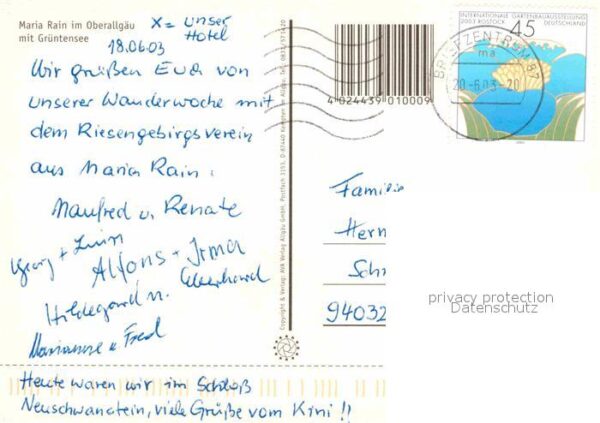 Maria Rain im Oberallgäu
mit Grüntensee
X = unser
Hotel
18.06.03
Wir grüßen Euch von
unserer Wanderwoche mit
dem Riesengebirgsverein
aus Maria Rain.
Manfred u. Renate
Georg +
Alfons + Irma
Hildegard u. Eberhard
Marianne u. Fred
Heute waren wir im Schloß
Neuschwanstein, viele Grüße vom Kini !!
Copyright & Verlag: AVA Verlag Allgäu GmbH, Postfach 3153, D-87440 Kempten im Allgäu, Tel.
4 024439 010009
INTERNATIONALE GARTENBAUAUSSTELLUNG
2003 ROSTOCK DEUTSCHLAND
45
BRIEFZENTRUM 87
ma
20-6.03-20
Familie
Her
Sch
94032
privacy protection
Datenschutz